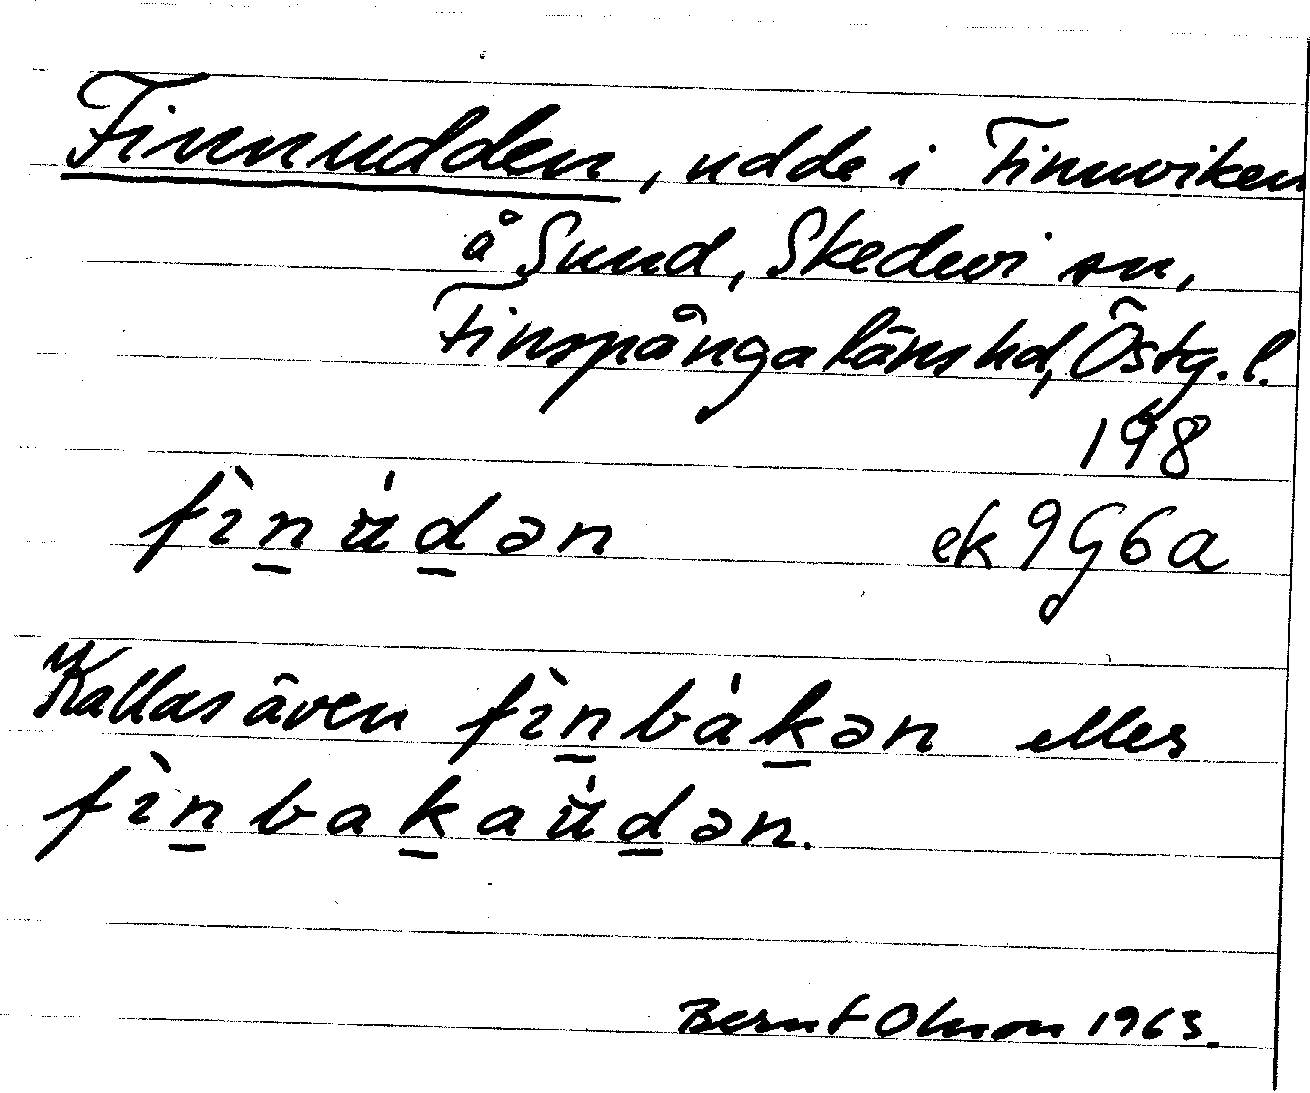 Finnudden, udde i Finnviken
å Sund, Skedevi sn,
Finspånga länshd, Östg. l.
198
fìn̲u̇́d̲ən ek 9G6a
Kallas även fìn̲bák̲ən eller
fìn̲bak̲au̇́d̲ən.
Bernt Olsson 1963.